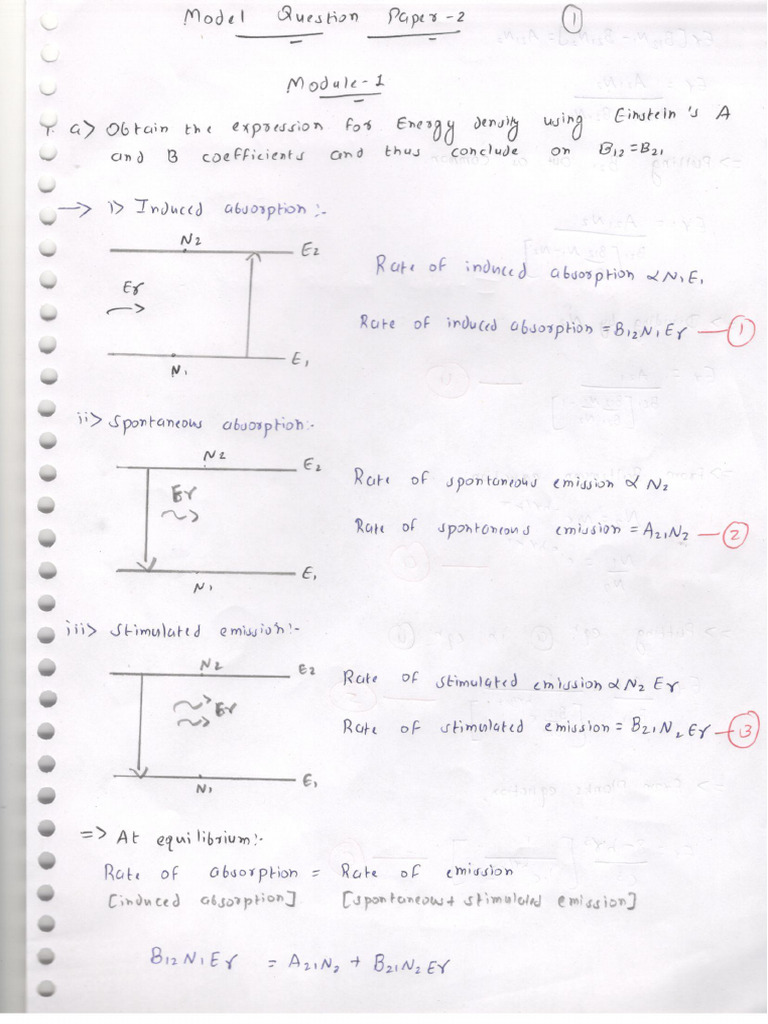 Model Question Paper-2
1
Module-1
1. a> Obtain the expression for Energy density using Einstein's A
and B coefficients and thus conclude on B12=B21
-> i> Induced absorption:-
N2
E2
Eγ
Rate of induced absorption α N1E1
Rate of induced absorption = B12N1Eγ — 1
E1
N1
ii> Spontaneous absorption:-
N2
E2
Eγ
Rate of spontaneous emission α N2
Rate of spontaneous emission = A21N2 — 2
E1
N1
iii> Stimulated emission:-
N2
E2
Eγ
Rate of stimulated emission α N2 Eγ
Rate of stimulated emission = B21N2Eγ — 3
E1
N1
=> At equilibrium:-
Rate of absorption = Rate of emission
[induced absorption] [spontaneous+ stimulated emission]
B12N1Eγ = A21N2 + B21N2Eγ